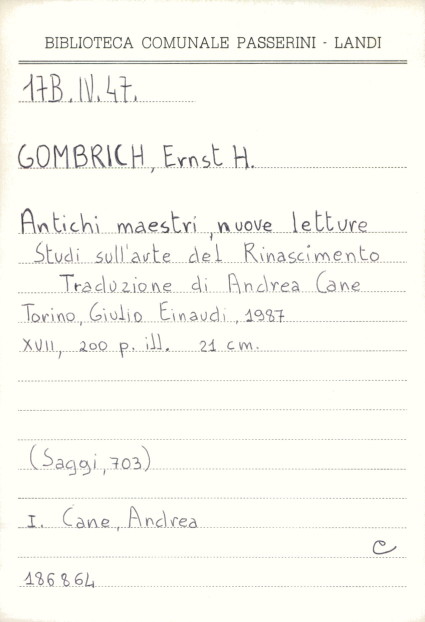 BIBLIOTECA COMUNALE PASSERINI - LANDI
17B.IV.47.
GOMBRICH, Ernst H.
Antichi maestri, nuove letture
Studi sull'arte del Rinascimento
Traduzione di Andrea Cane
Torino, Giulio Einaudi, 1987
XVII, 200 p. ill. 21 cm.
(Saggi, 703)
I. Cane, Andrea
C
186864